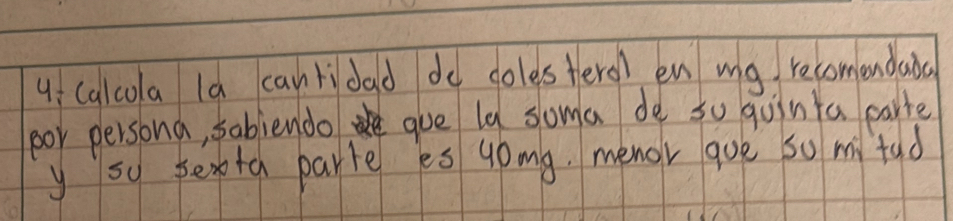 4: Calcola la cantidad de colesterol en mg. recomendada
por persona, sabiendo que la suma de su quinta parte
y su sexta parte es 40mg. menor que su mitad